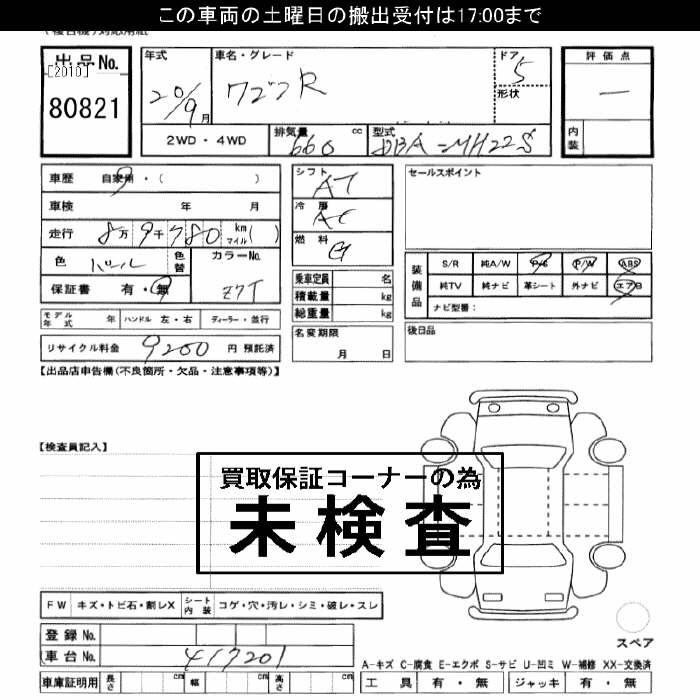 この車両の土曜日の搬出受付は17:00まで
出品No.
[2010]
80821
年式
20/9月
車名・グレード
ワゴンR
ドア
5
形状
評価点
―
内装
2WD・4WD
排気量 660 cc
型式 DBA-MH22S
車歴 自家用・( )
車検 年 月
走行 8万9千780 km マイル( )
色 パール 色替
カラーNo. Z7T
保証書 有・無
モデル年式 年 ハンドル 左・右 ディーラー・並行
リサイクル料金 9200 円 預託済
シフト AT
冷房 AC
燃料 G
乗車定員 名
積載量 kg
総重量 kg
名変期限
月 日
セールスポイント
装備品
S/R 純A/W P/S P/W ABS
純TV 純ナビ 革シート 外ナビ エアB
ナビ型番:
後日品
【出品店申告欄(不良箇所・欠品・注意事項等)】
【検査員記入】
買取保証コーナーの為
未検査
FW キズ・トビ石・割レX シート内装 コゲ・穴・汚レ・シミ・破レ・スレ
登録No.
車台No. 417201
車庫証明用 長さ cm 幅 cm 高さ cm
スペア
A-キズ C-腐食 E-エクボ S-サビ U-凹ミ W-補修 XX-交換済
工具 有・無 ジャッキ 有・無